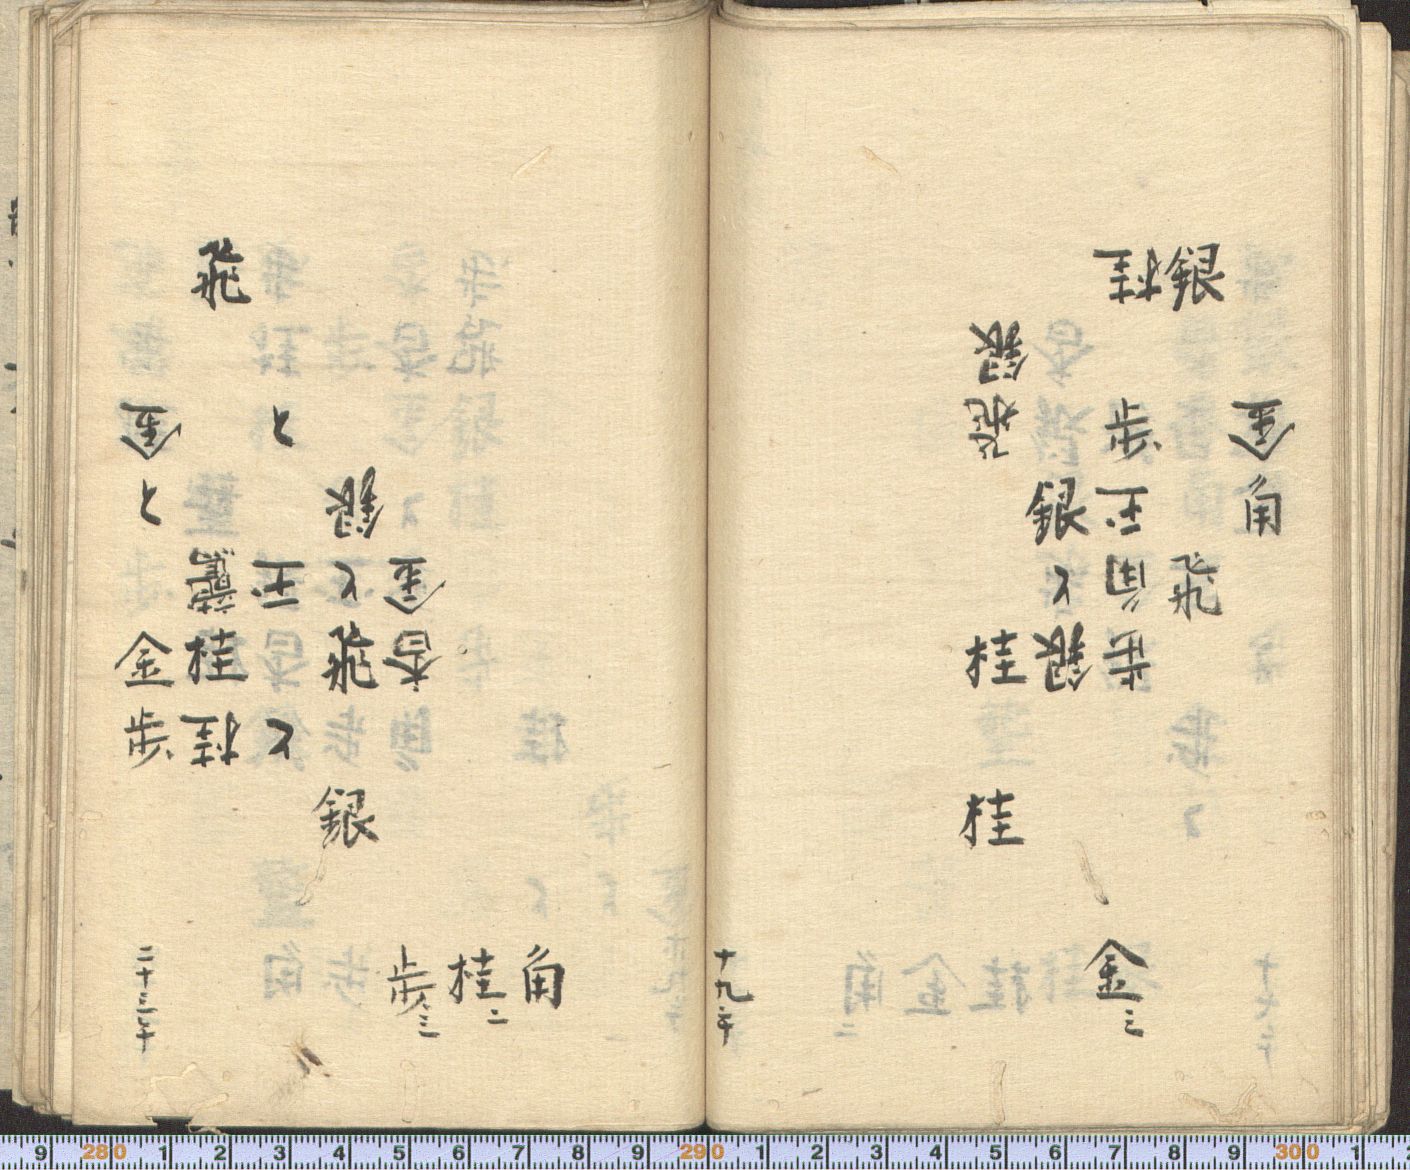 金角
銀飛
桂歩玉角歩金三
銀と銀
銀飛桂桂
十九手
角
桂二
金香歩三
銀と飛銀
と玉と
飛龍桂桂
金とと金歩
二十三手
9 280 1 2 3 4 5 6 7 8 9 290 1 2 3 4 5 6 7 8 9 300 1 2